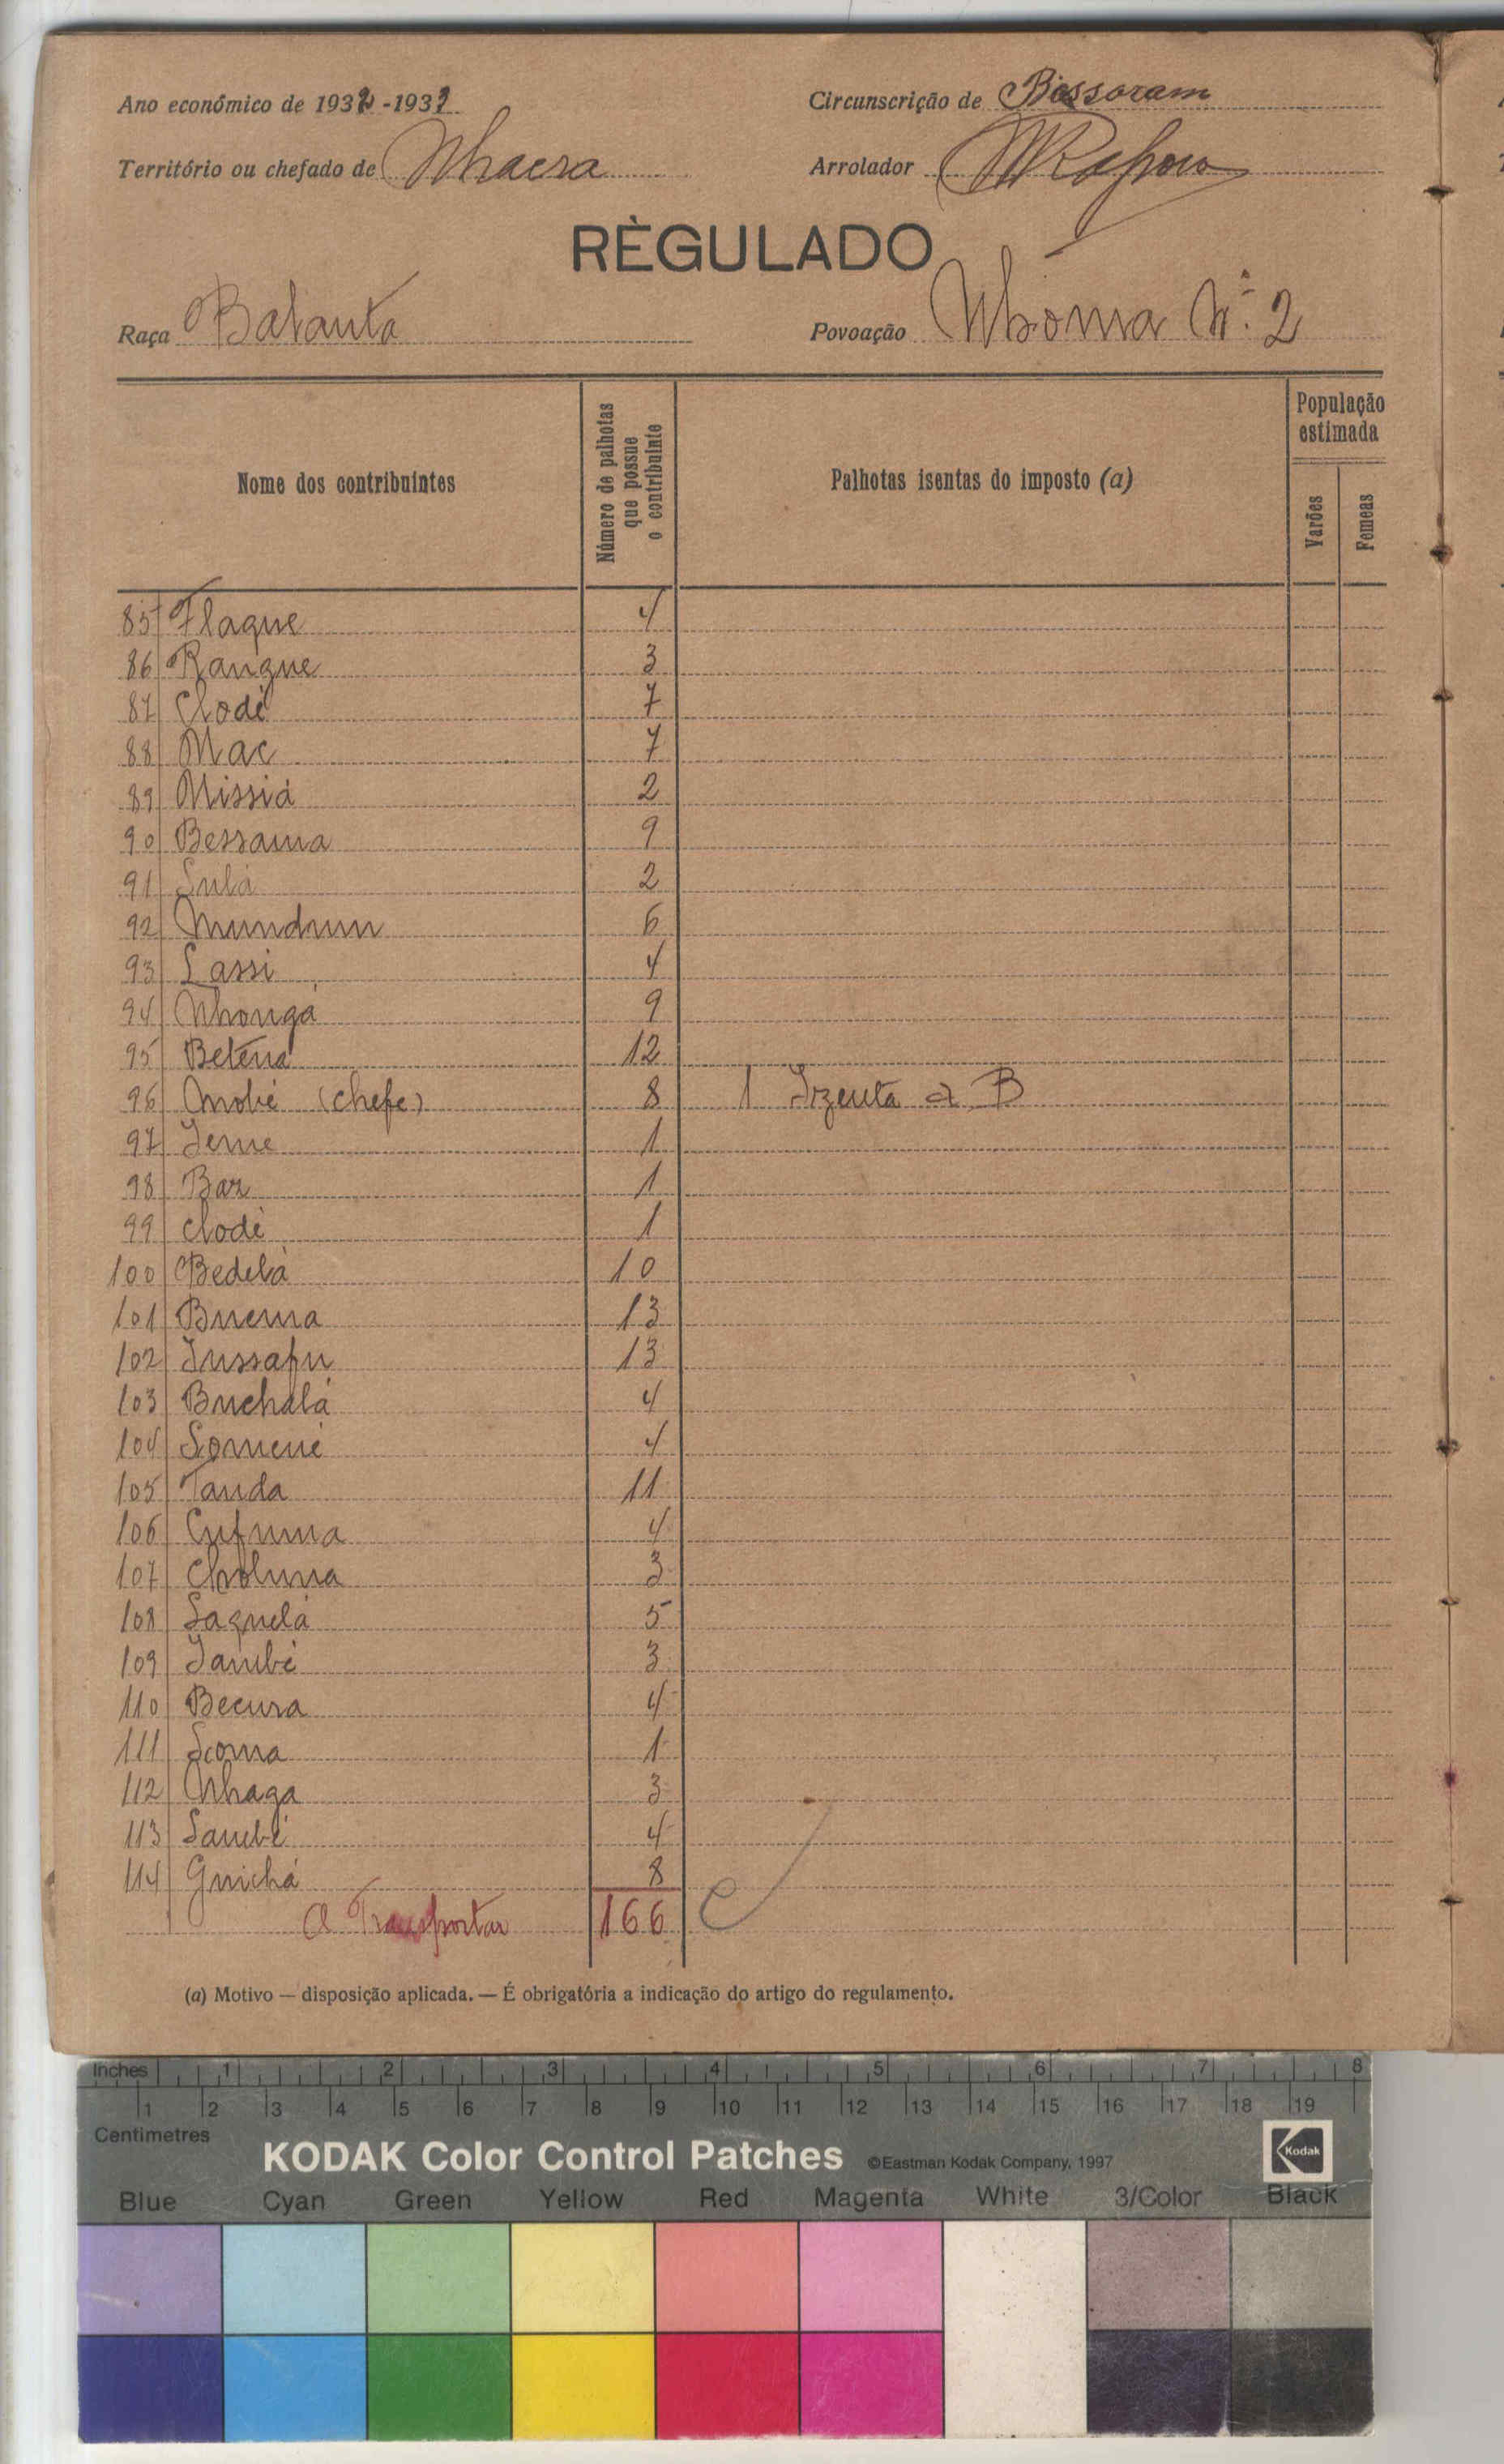 Ano económico de 1932-1933
Circunscrição de Bissoram
Território ou chefado de Nhacra
Arrolador
RÈGULADO
Raça Balanta
Povoação Nhoma Nº 2
Nome dos contribuintes
Número de palhotas que possue o contribuinte
Palhotas isentas do imposto (a)
População estimada
Varões
Femeas
85 Flaque 4
86 Rangue 3
87 Clodé 7
88 Mac 7
89 Missiá 2
90 Bessama 9
91 Sulá 2
92 Mundum 6
93 Lassi 4
94 Nhonga 9
95 Betena 12
96 (chefe) 8 1 Izenta a B
97 Jeme 1
98 Bar 1
99 Clodé 1
100 Bedelá 10
101 Buema 13
102 Jussafu 13
103 Buchalá 4
104 Somené 4
105 Tanda 11
106 Cufuma 4
107 Choluna 3
108 Saquelá 5
109 Jambé 3
110 Becura 4
111 Scoma 1
112 Nhaga 3
113 Sambé 4
114 Guichá 8
A Transportar 166
(a) Motivo — disposição aplicada. — É obrigatória a indicação do artigo do regulamento.
Inches 1 2 3 4 5 6 7 8
1 2 3 4 5 6 7 8 9 10 11 12 13 14 15 16 17 18 19
Centimetres
KODAK Color Control Patches ©Eastman Kodak Company, 1997 Kodak
Blue Cyan Green Yellow Red Magenta White 3/Color Black